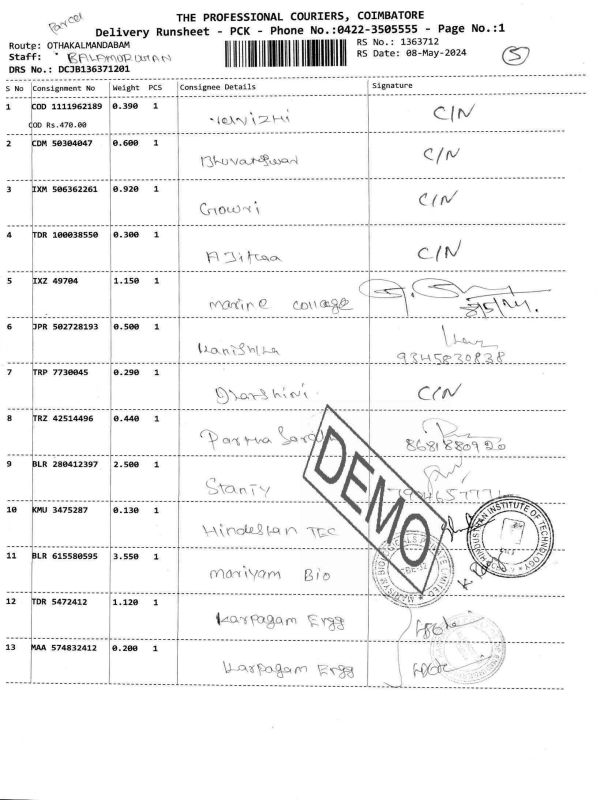 Parcel
THE PROFESSIONAL COURIERS, COIMBATORE
Delivery Runsheet - PCK - Phone No.:0422-3505555 - Page No.:1
Route: OTHAKALMANDABAM
RS No.: 1363712
Staff: BALAMURUGAN
RS Date: 08-May-2024
5
DRS No.: DCJB136371201
S No Consignment No Weight PCS Consignee Details Signature
1 COD 1111962189 0.390 1 C/N
COD Rs.470.00
2 CDM 50304047 0.600 1 Bhuvaneshwari C/N
3 IXM 506362261 0.920 1 Gowri C/N
4 TDR 100038550 0.300 1 C/N
5 IXZ 49704 1.150 1 marine college
8/5/24.
6 JPR 502728193 0.500 1 Kanishka
9345030838
7 TRP 7730045 0.290 1 Dharshini C/N
8 TRZ 42514496 0.440 1 Partha
8681880920
9 BLR 280412397 2.500 1 Stanly
DEMO
10 KMU 3475287 0.130 1 Hindestan TEC
HINDUSTHAN INSTITUTE OF TECHNOLOGY
11 BLR 615580595 3.550 1 mariyam Bio
12 TDR 5472412 1.120 1 Karpagam Ergg
13 MAA 574832412 0.200 1 Karpagam Ergg